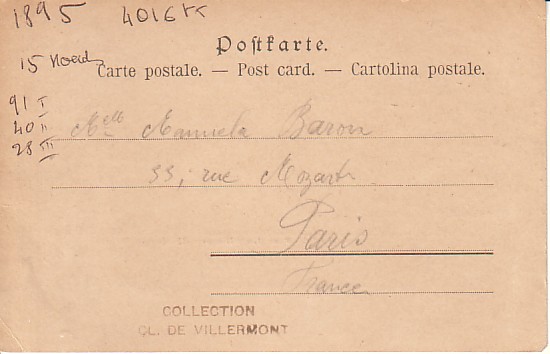 1895 4016
Postkarte.
15
Carte postale. — Post card. — Cartolina postale.
91 I
40 II
28 III
Melle Manuela Baron
55, rue Mozart
Paris
France
COLLECTION
CL. DE VILLERMONT